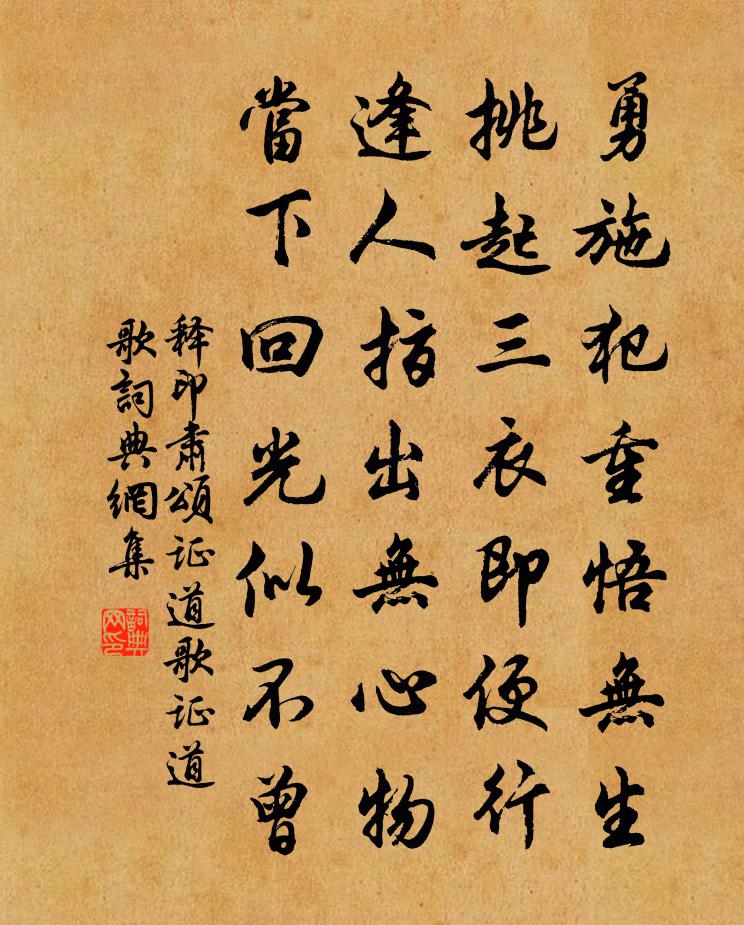 勇施犯重悟無生
挑起三衣即便行
逢人指出無心物
當下回光似不曾
释印肅頌证道歌证道
歌詞典網集
詞典網印